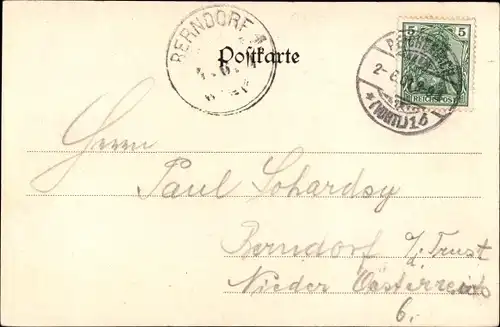 BERNDORF
Postkarte
5 5
REICHSPOST
2-6
(VOGTL)1b
Herrn
Paul Schardsy
Berndorf a/d. Triest
Nieder Oesterreich
6.